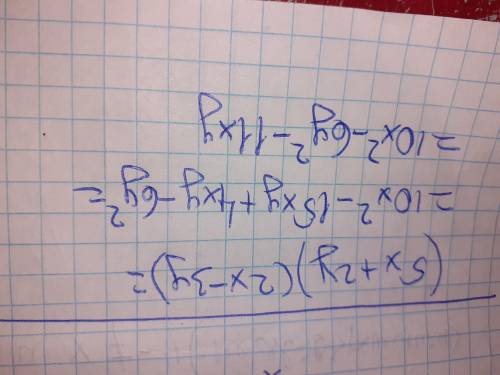 (5x+2y)(2x-3y)=
=10x²-15xy+4xy-6y²=
=10x²-6y²-11xy